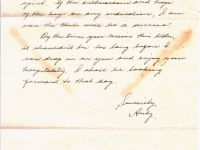 If the enthusiasm and hope
of the boys are any indication, I am
sure the show will be a success.
By the time you receive this letter,
it shouldn't be too long before I
can drop in on you and enjoy your
hospitality. I shall be looking
forward to that day.
Sincerely,
Andy.